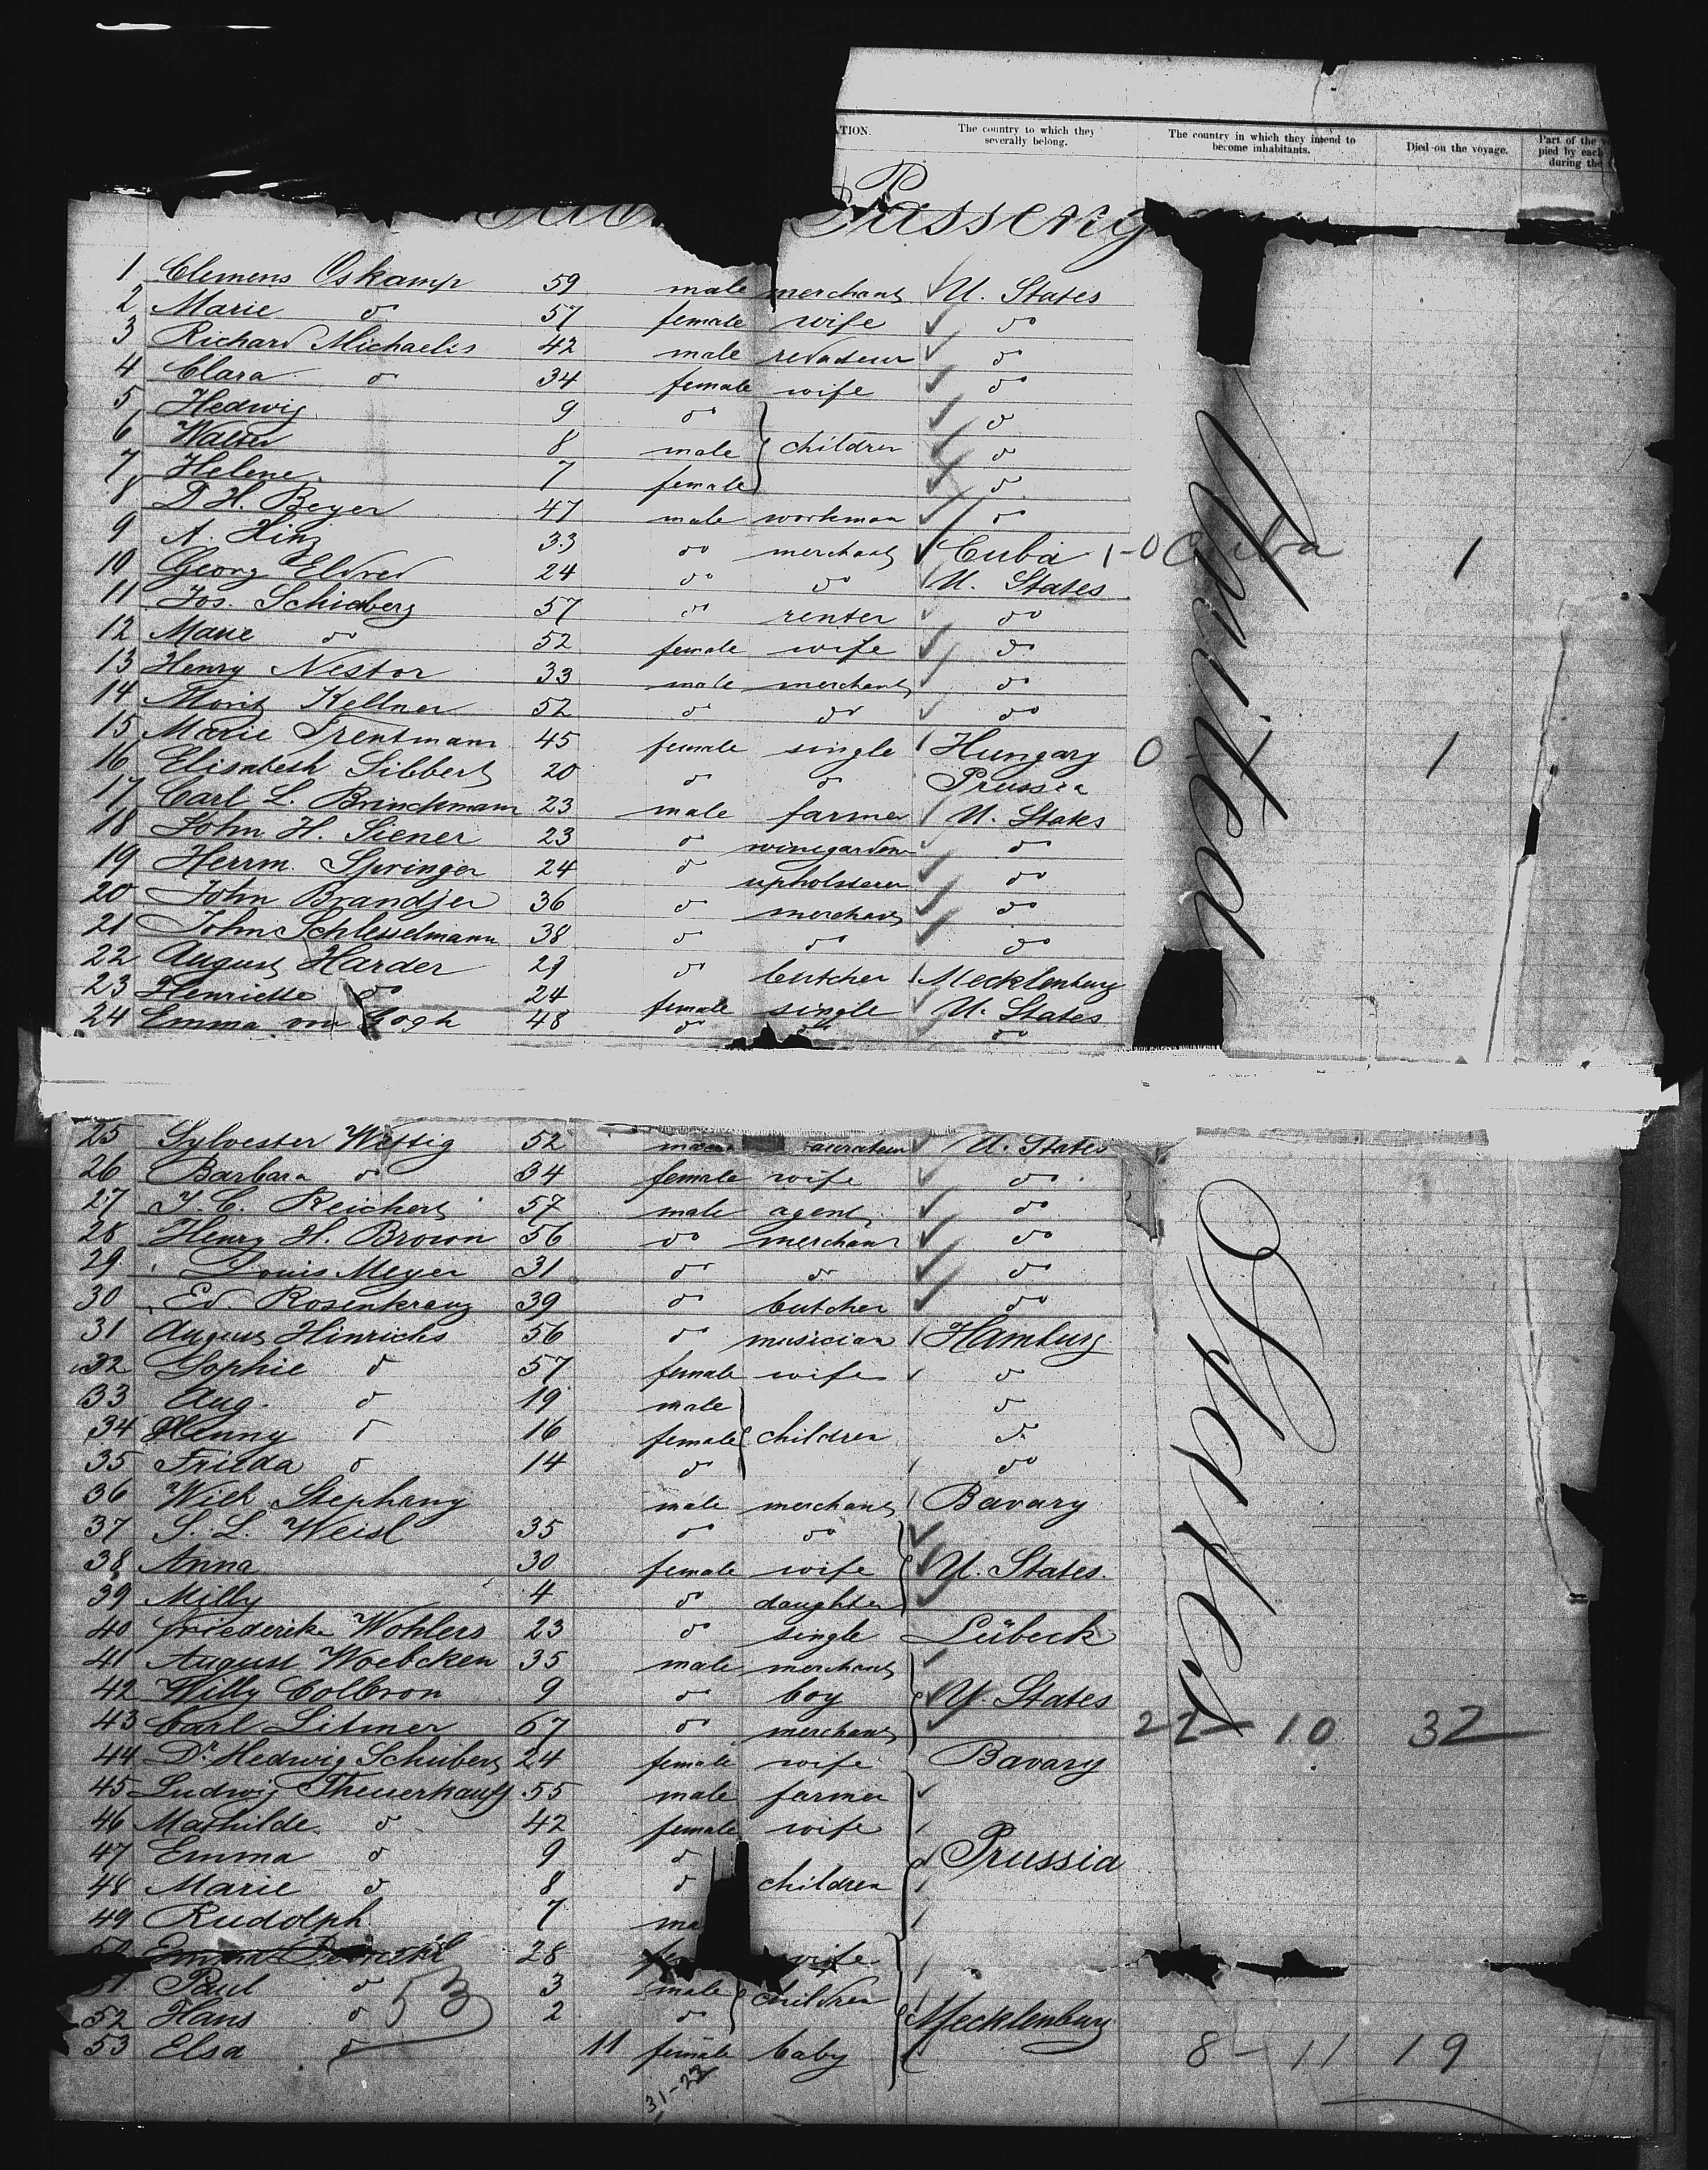 The country to which they severally belong.
The country in which they intend to become inhabitants.
Died on the voyage.
Part of the
pied by each
during the
Passeng
1 Clemens Oskamp 59 male merchant U. States
2 Marie do 57 female wife do
3 Richard Michaelis 42 male redacteur do
4 Clara do 34 female wife do
5 Hedwig 9 do do
6 Walter 8 male children do
7 Helene 7 female do
8 D. H. Beyer 47 male workman do
9 A. Hinz 33 do merchant Cuba 1-0 Cuba 1
10 Georg Eldred 24 do do U. States
11 Jos. Schidberg 57 do renter do
12 Marie do 52 female wife do
13 Henry Nestor 33 male merchant do
14 Moritz Kellner 52 do do do
15 Marie Trentmann 45 female single Hungary 0 1
16 Elisabeth Sibbert 20 do do Prussia
17 Carl L. Brinckmann 23 male farmer U. States
18 John H. Siener 23 do winegardener do
19 Herrm. Springer 24 do upholsterer do
20 John Brandjer 36 do merchant do
21 John Schlesselmann 38 do do do
22 August Harder 29 do butcher Mecklenburg
23 Henriette do 24 female single U. States
24 Emma von Gogh 48 do do do
United
25 Sylvester Wettig 52 U. States
26 Barbara do 34 female wife do
27 J. C. Reichert 57 male agent do
28 Henry H. Brown 56 do merchant do
29 Louis Meyer 31 do do do
30 Ed. Rosenkranz 39 do butcher do
31 August Hinrichs 56 do musician Hamburg
32 Sophie do 57 female wife do
33 Aug. do 19 male do
34 Henny do 16 female children do
35 Frieda do 14 do do
36 Wilh. Stephany male merchant Bavary
37 S. L. Weisl 35 do do
38 Anna 30 female wife U. States
39 Milly 4 do daughter
40 Friederike Wohlers 23 do single Lübeck
41 August Woebcken 35 male merchant
42 Willy Colbron 9 do boy U. States
43 Carl Litmer 67 do merchant 22 - 10 32
44 Dr. Hedwig Schubert 24 female wife Bavary
45 Ludwig Theuerkauff 55 male farmer
46 Mathilde do 42 female wife
47 Emma do 9 do Prussia
48 Marie do 8 do children
49 Rudolph 7 ma
50 Emma 28 fe wife
51 Paul do 3 male children
52 Hans do 53 2 do Mecklenburg
53 Elsa do 11 female baby 8 - 11 19
31-22
States